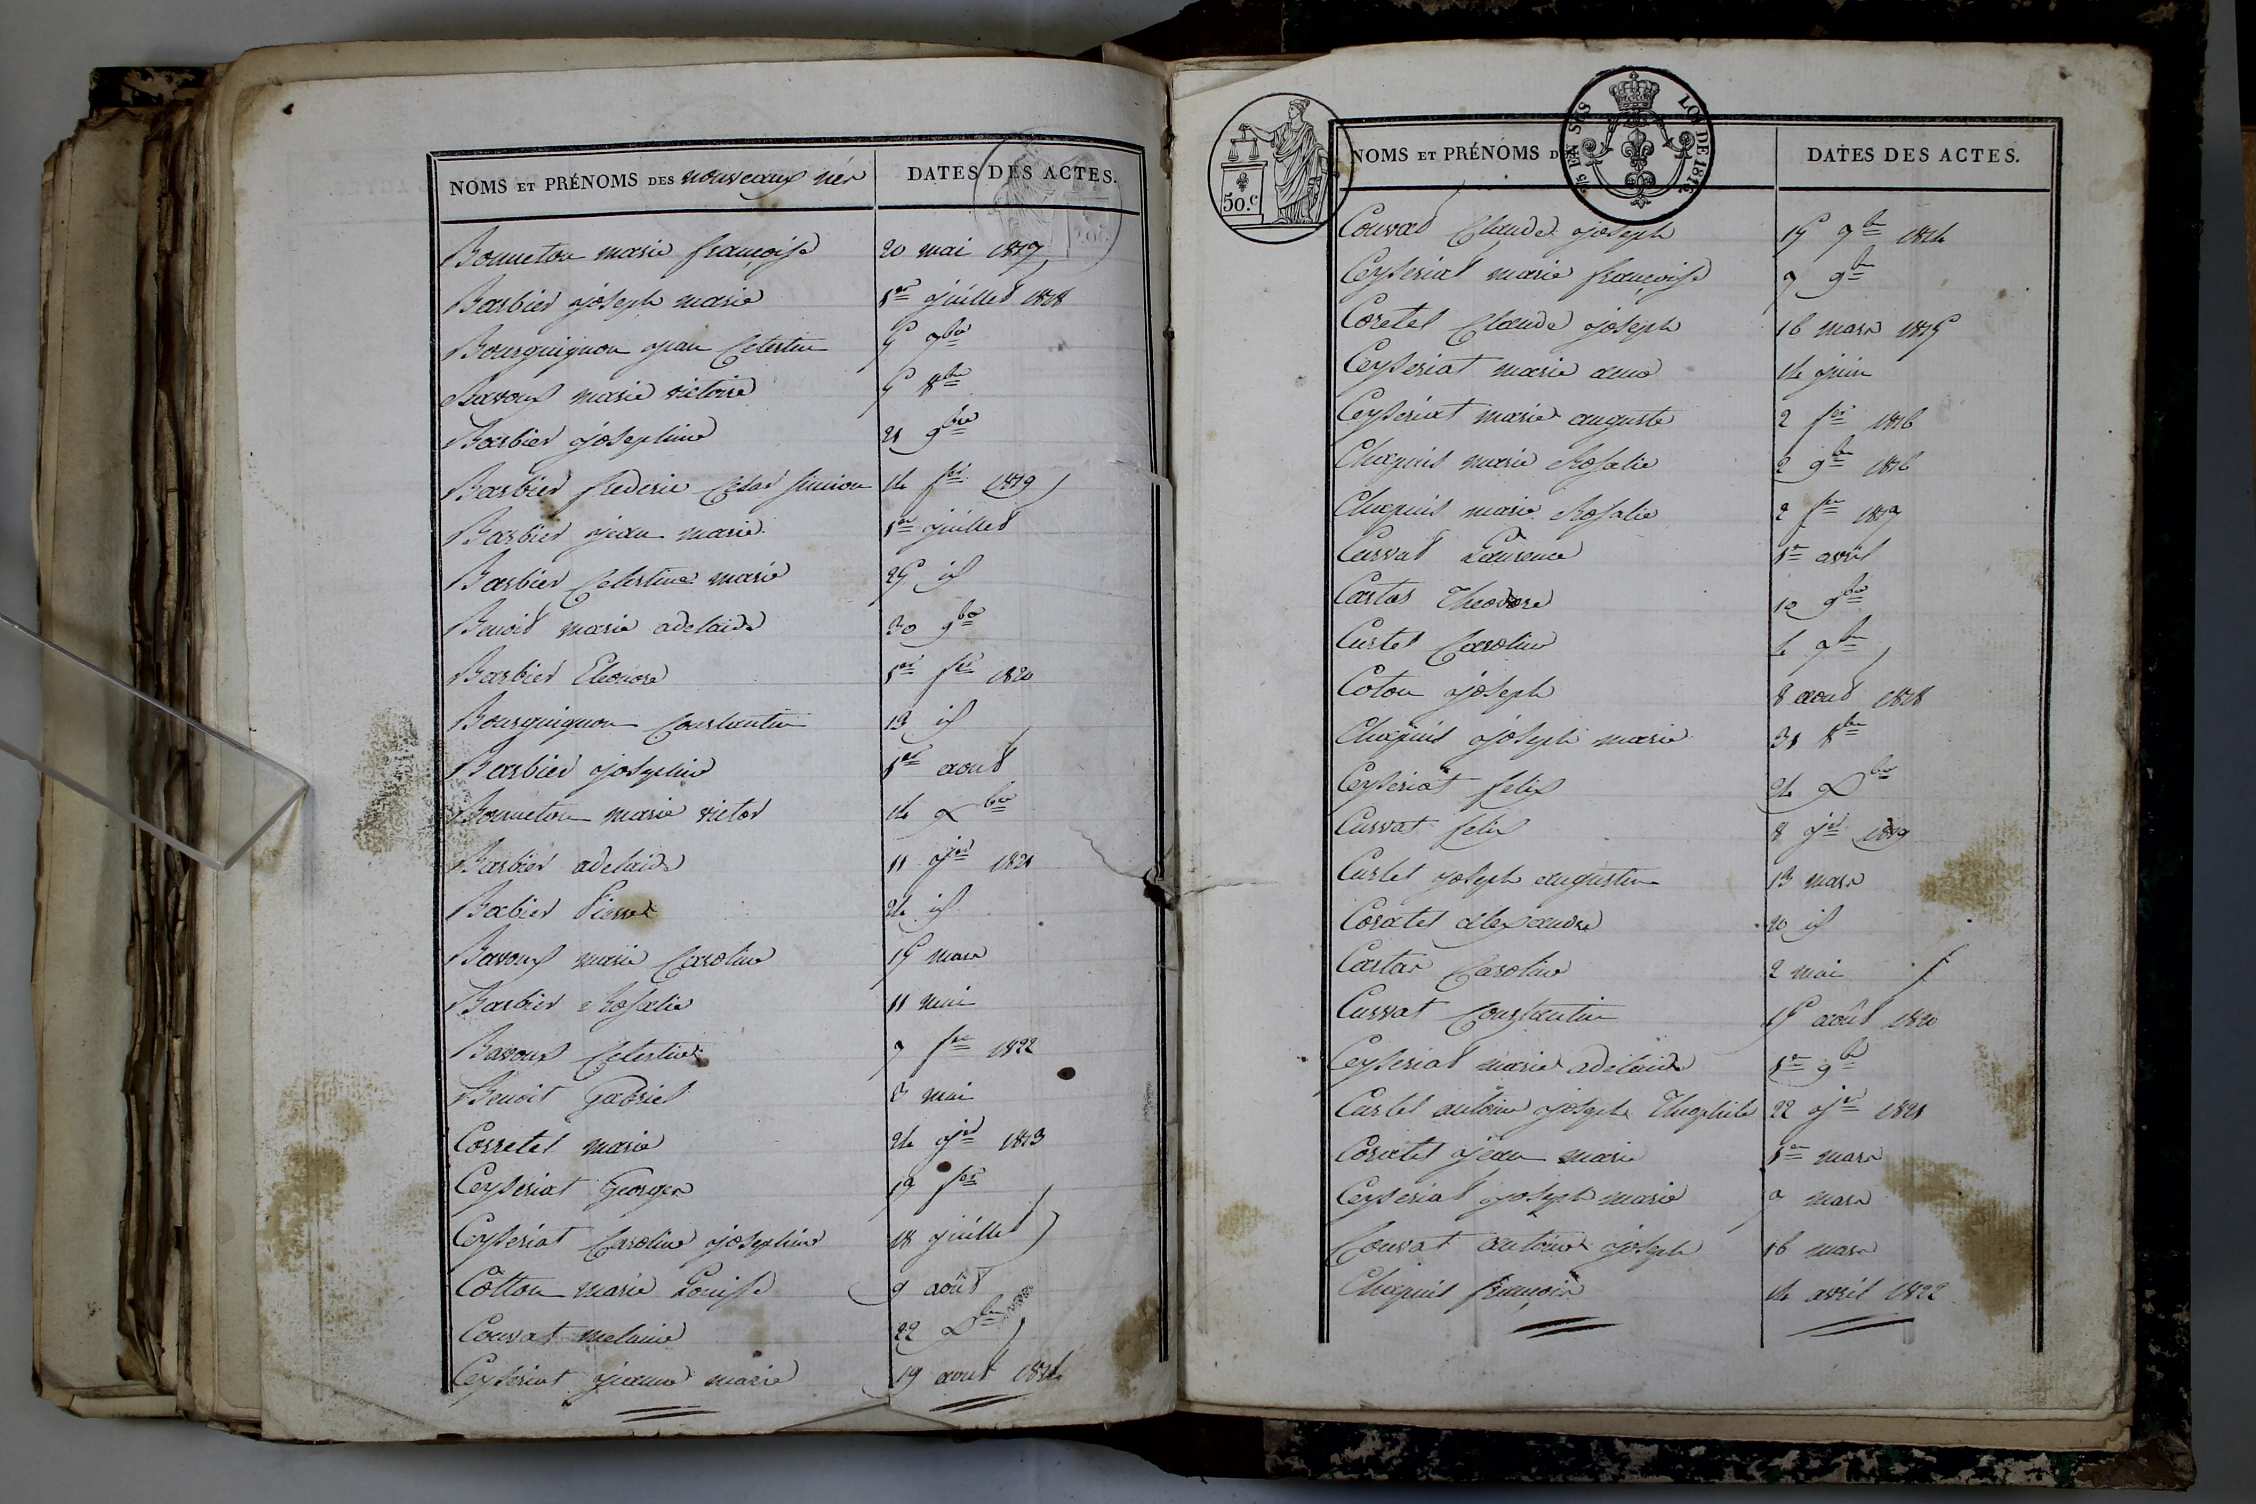 NOMS ET PRÉNOMS DES nouveaux nés DATES DES ACTES.
Bonneton marie françoise 20 mai 1817
Barbier joseph marie 1er juillet 1818
Bourguignon jean Celestin 5 7bre
Bavoux marie victoire 5 8bre
Barbier josephine 21 9bre
Barbier frederic Cesar simeon 14 fer 1819
Barbier jean marie 1er juillet
Barbier Celestine marie 25 id
Benoit marie adelaide 30 9bre
Barbier Eleonore 1er fer 1820
Bourguignon Constantin 13 id
Barbier josephine 1er aout
Bonneton marie victor 14 Xbre
Barbier adelaide 11 jer 1821
Babier Pierre 24 id
Bavoux marie Caroline 15 mars
Barbier Rosalie 11 mai
Bavoux Celestine 7 fer 1822
Benoit Gabriel 3 mai
Corretel marie 24 jer 1813
Ceyseriat Georges 19 fer
Ceyseriat Caroline josephine 18 juillet
Cotton marie Louise 9 août
Couvat melanie 22 Xbre
Ceyseriat jeanne marie 19 aout 1814
50.c
75 EN SUS
LOI DE 1816
NOMS ET PRÉNOMS D DATES DES ACTES.
Couvat Claude joseph 15 7bre 1814
Ceyseriat marie françoise 7 9bre
Coretel Claude joseph 16 mars 1815
Ceyseriat marie anne 14 juin
Ceyseriat marie auguste 2 fer 1816
Chapuis marie Rosalie 2 9bre 1816
Chapuis marie Rosalie 2 fer 1817
Curvat Laurence 1er avril
Cartas Theodore 10 9bre
Curtet Caroline 4 9bre
Coton joseph 8 aout 1818
Chapuis joseph marie 31 8bre
Ceyseriat felix 24 Xbre
Curvat felix 8 jer 1819
Curtet joseph augustin 13 mars
Coratel alexandre 20 id
Cartas Caroline 2 mai
Curvat Constantin 15 août 1820
Ceyseriat marie adelaide 1er 9bre
Curtet antoine joseph Theophile 22 jer 1821
Coratel jean marie 1er mars
Ceyseriat joseph marie 9 mars
Couvat antoine joseph 16 mars
Chapuis françois 14 avril 1822